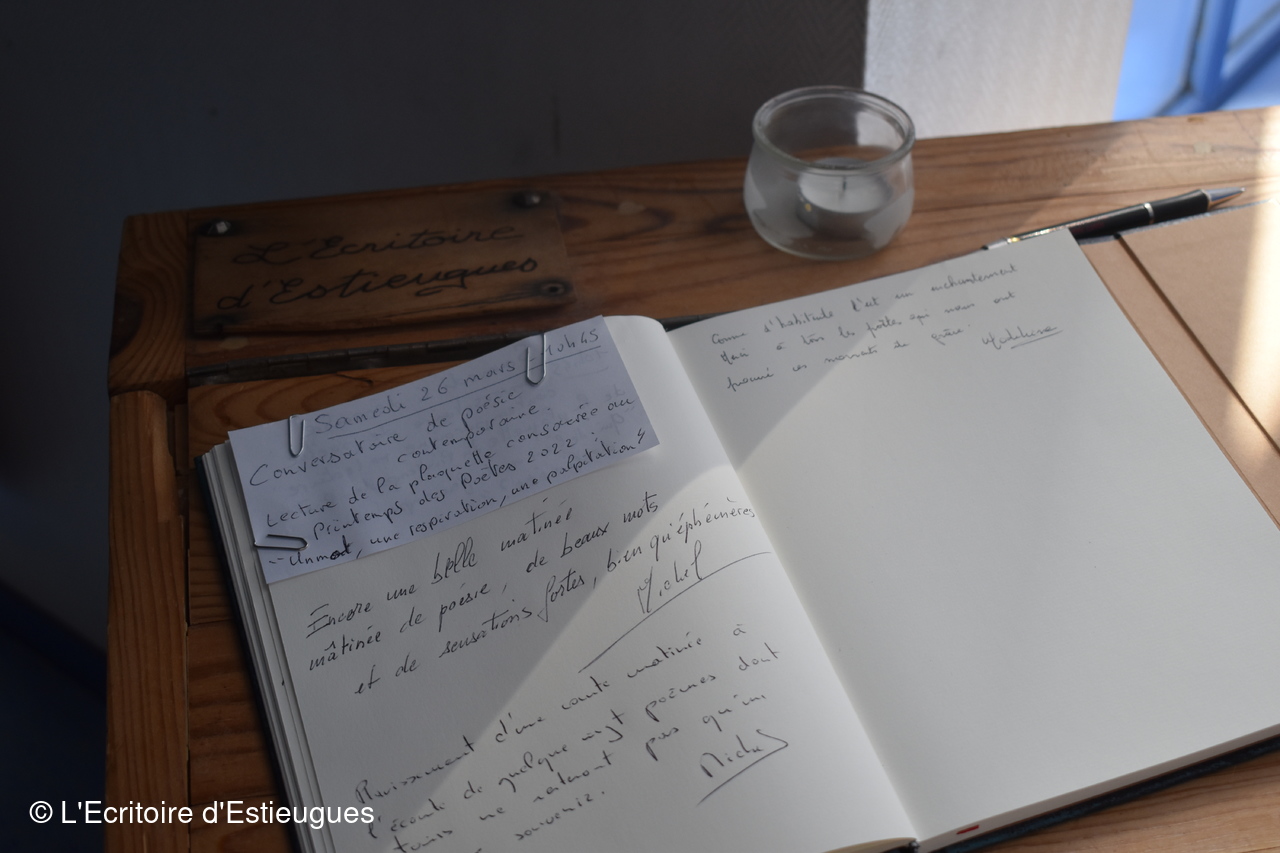 L'Ecritoire
d'Estieugues
Samedi 26 mars - 10h45
Conversatoire de poésie
contemporaine.
Lecture de la plaquette consacrée au
Printemps des Poètes 2022 :
"Un mot, une respiration, une palpitation"
Encore une belle matinée
mâtinée de poésie, de beaux mots
et de sensations fortes, bien qu'éphémères
Michel
Ravissement d'une courte matinée à
l'écoute de quelque vingt poèmes dont
ne resteront pas qu'un
souvenir.
Comme d'habitude c'est un enchantement
Merci à tous les poètes qui nous ont
ces moments de grâce.
Madeleine
© L'Ecritoire d'Estieugues